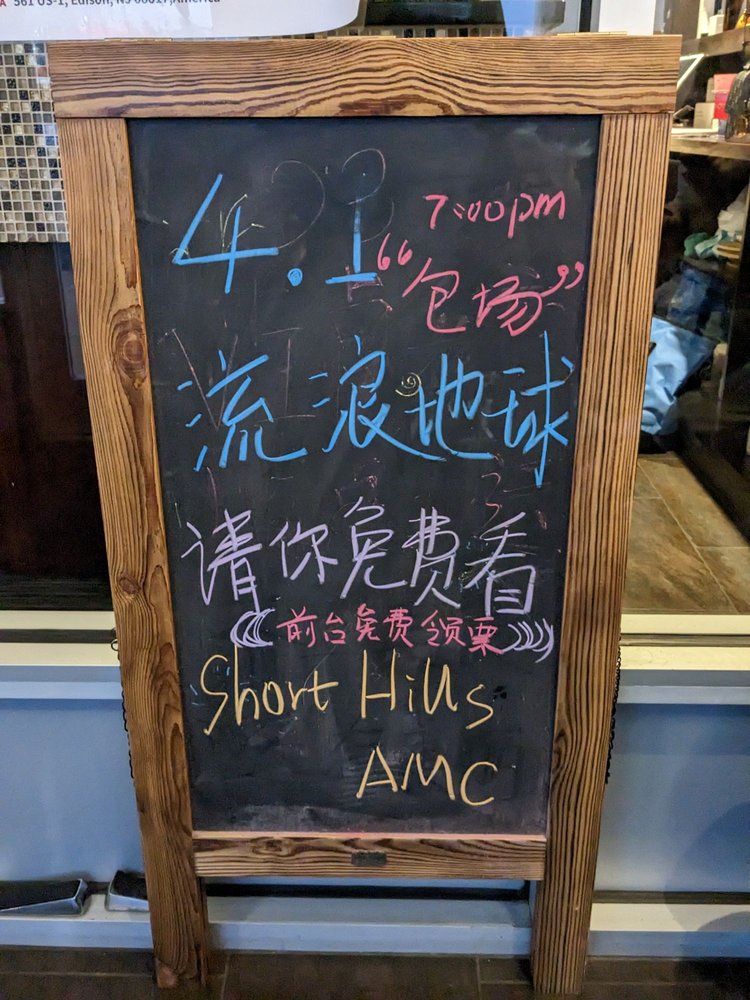 561 US-1, Edison, NJ 08817,America
4.1 7:00pm
“包场”
流浪地球
请你免费看
前台免费领票
Short Hills
AMC